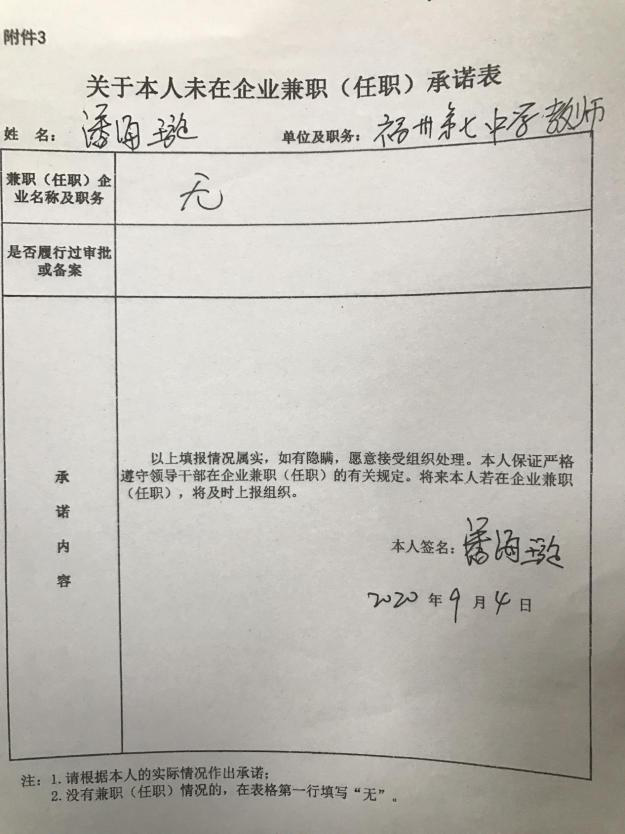 附件3
关于本人未在企业兼职（任职）承诺表
姓 名：潘海 单位及职务：福州第七中学教师
兼职（任职）企
业名称及职务
无
是否履行过审批
或备案
承
诺
内
容
以上填报情况属实，如有隐瞒，愿意接受组织处理。本人保证严格
遵守领导干部在企业兼职（任职）的有关规定。将来本人若在企业兼职
（任职），将及时上报组织。
本人签名：潘海
2020 年 9 月 4 日
注：1.请根据本人的实际情况作出承诺；
2.没有兼职（任职）情况的，在表格第一行填写“无”。